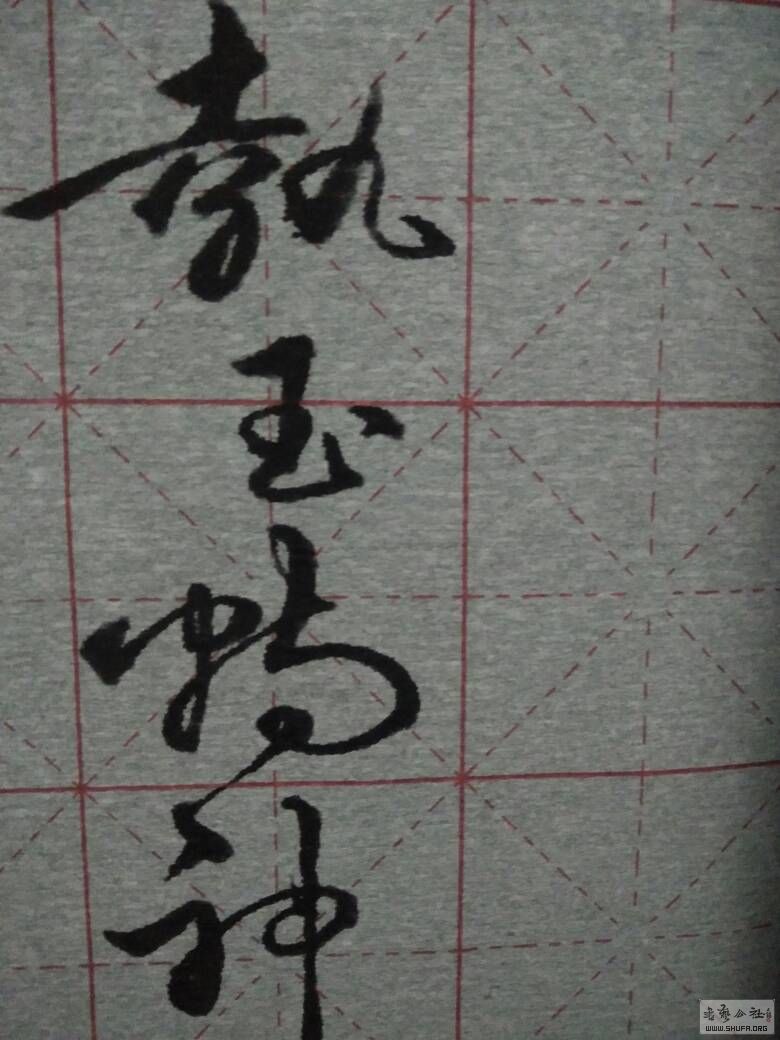 執玉暢神
書藝公社
WWW.SHUFA.ORG